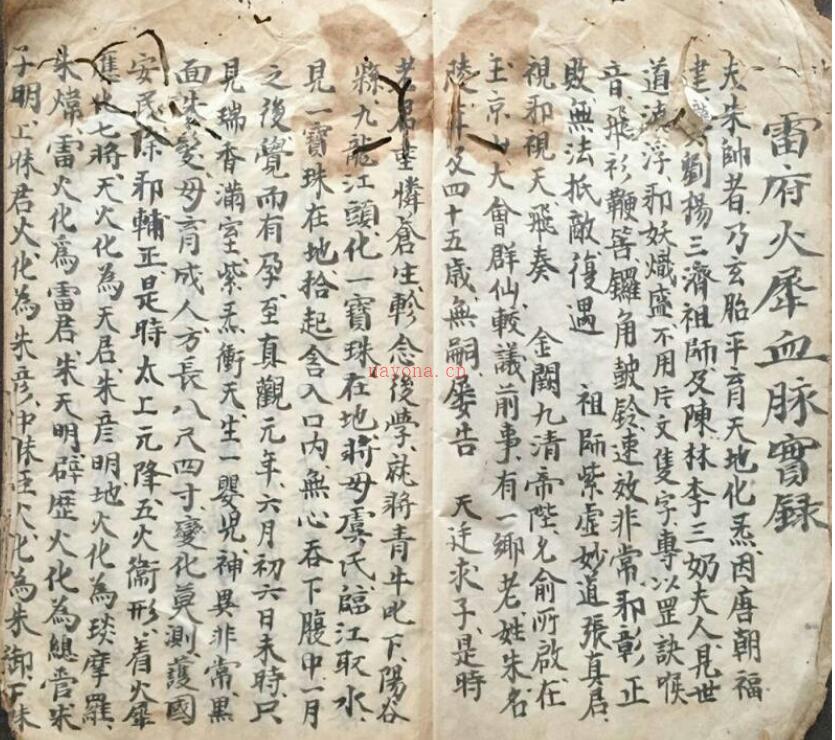 雷府火犀血脉寶録
夫朱帥者、乃玄胎平育天地化炁、因唐朝福
建劉楊三濟祖師及陳林李三奶夫人、見世
道澆浮、邪妖熾盛、不用片文隻字、專以罡訣喉
音、飛衫鞭筶、鑼角皷鈴、速效非常、邪彰正
敗、無法抵敵、復遇 祖師紫虛妙道張真君、
視邪視天飛奏 金闕九清帝陛、允俞所啟、在
玉京山大會群仙、較議前事、有一鄉老、姓朱名
陵、年及四十五歲、無嗣、屡告 天廷求子、是時
老君垂憐蒼生、軫念後學、就將青牛叱下、陽谷
縣、九龍江頭、化一寶珠在地、將母虞氏、臨江取水、
見一寶珠在地拾起、含入口内、無心吞下腹中、一月
之後、覺而有孕、至真觀元年、六月初六日未時、只
見瑞香滿室、紫炁衝天、生一嬰兒、神異非常、黑
面髮、母育成人、方長八尺四寸、變化莫測、護國
安民、除邪輔正、是時太上元降、五火衞形、着火犀
應化七將、天火化為天君、朱彦明、地火化為琰摩羅、
朱、雷火化爲雷君、朱天明、霹歷火化為總管朱
子明、上昧君火化為朱彦、中昧臣火化為朱御、下昧
nayona.cn